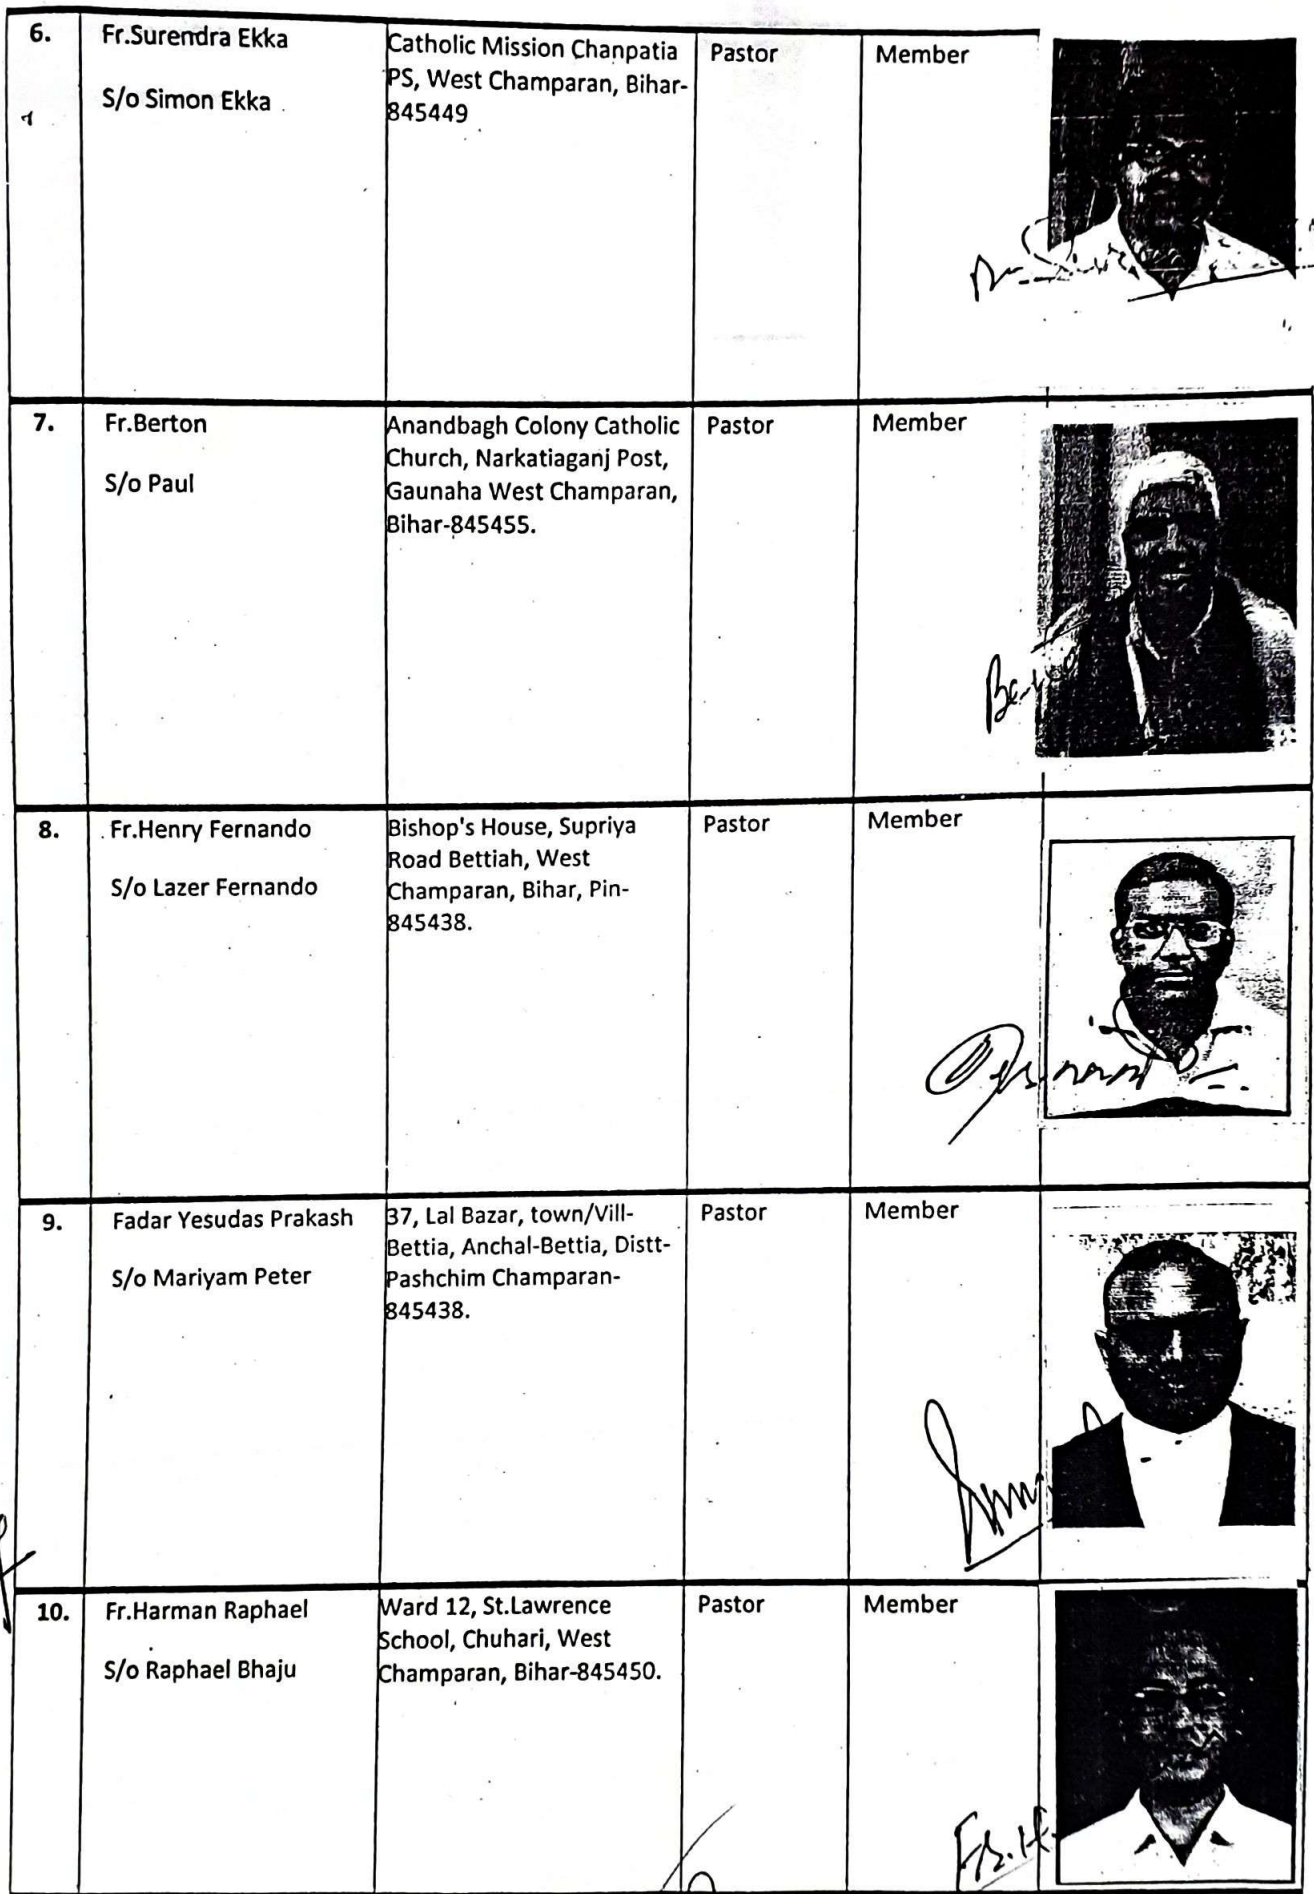 6.
Fr.Surendra Ekka
S/o Simon Ekka
Catholic Mission Chanpatia
PS, West Champaran, Bihar-
845449
Pastor
Member
7.
Fr.Berton
S/o Paul
Anandbagh Colony Catholic
Church, Narkatiaganj Post,
Gaunaha West Champaran,
Bihar-845455.
Pastor
Member
8.
Fr.Henry Fernando
S/o Lazer Fernando
Bishop's House, Supriya
Road Bettiah, West
Champaran, Bihar, Pin-
845438.
Pastor
Member
9.
Fadar Yesudas Prakash
S/o Mariyam Peter
37, Lal Bazar, town/Vill-
Bettia, Anchal-Bettia, Distt-
Pashchim Champaran-
845438.
Pastor
Member
10.
Fr.Harman Raphael
S/o Raphael Bhaju
Ward 12, St.Lawrence
School, Chuhari, West
Champaran, Bihar-845450.
Pastor
Member